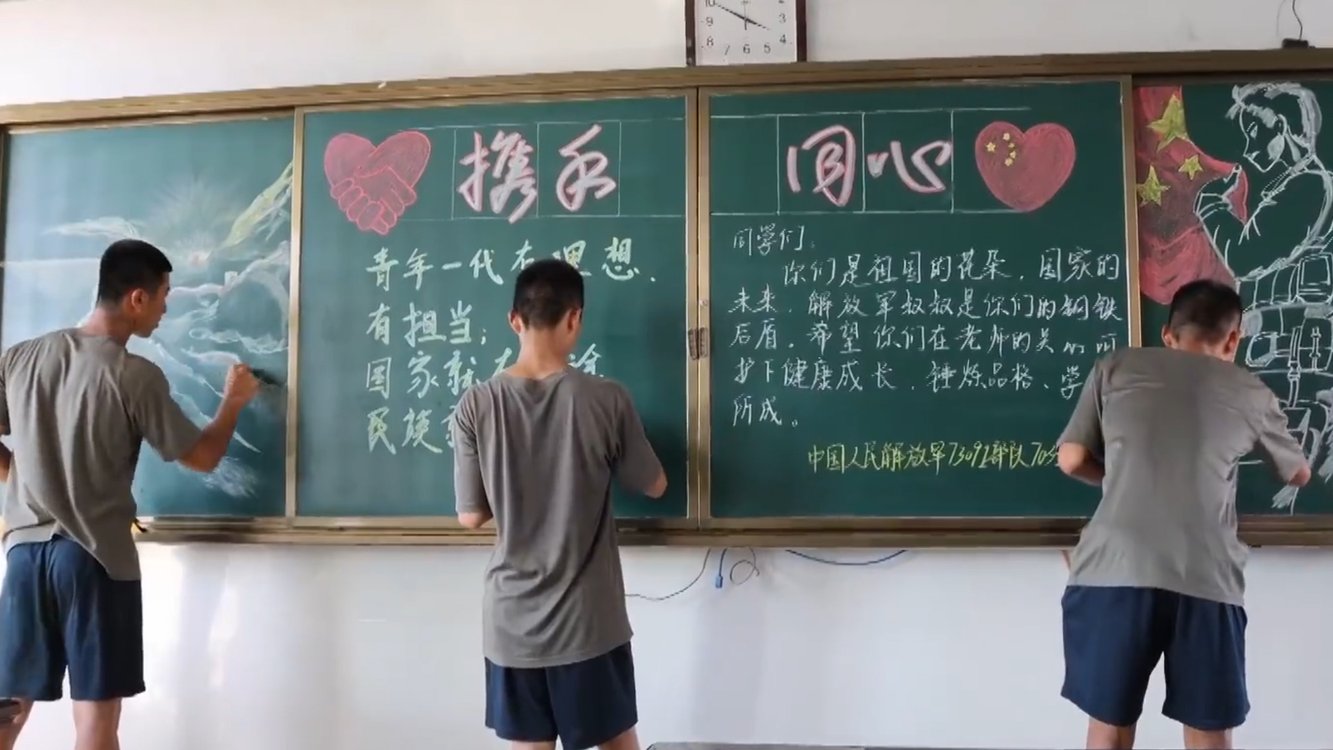 10
9
8
7
6
5
4
3
携手
同心
青年一代有理想、
有担当；
国家就有 途
民族
同学们：
你们是祖国的花朵，国家的
未来，解放军叔叔是你们的钢铁
后盾，希望你们在老师的关
护下健康成长，锤炼品格、学
所成。
中国人民解放军73091部队70